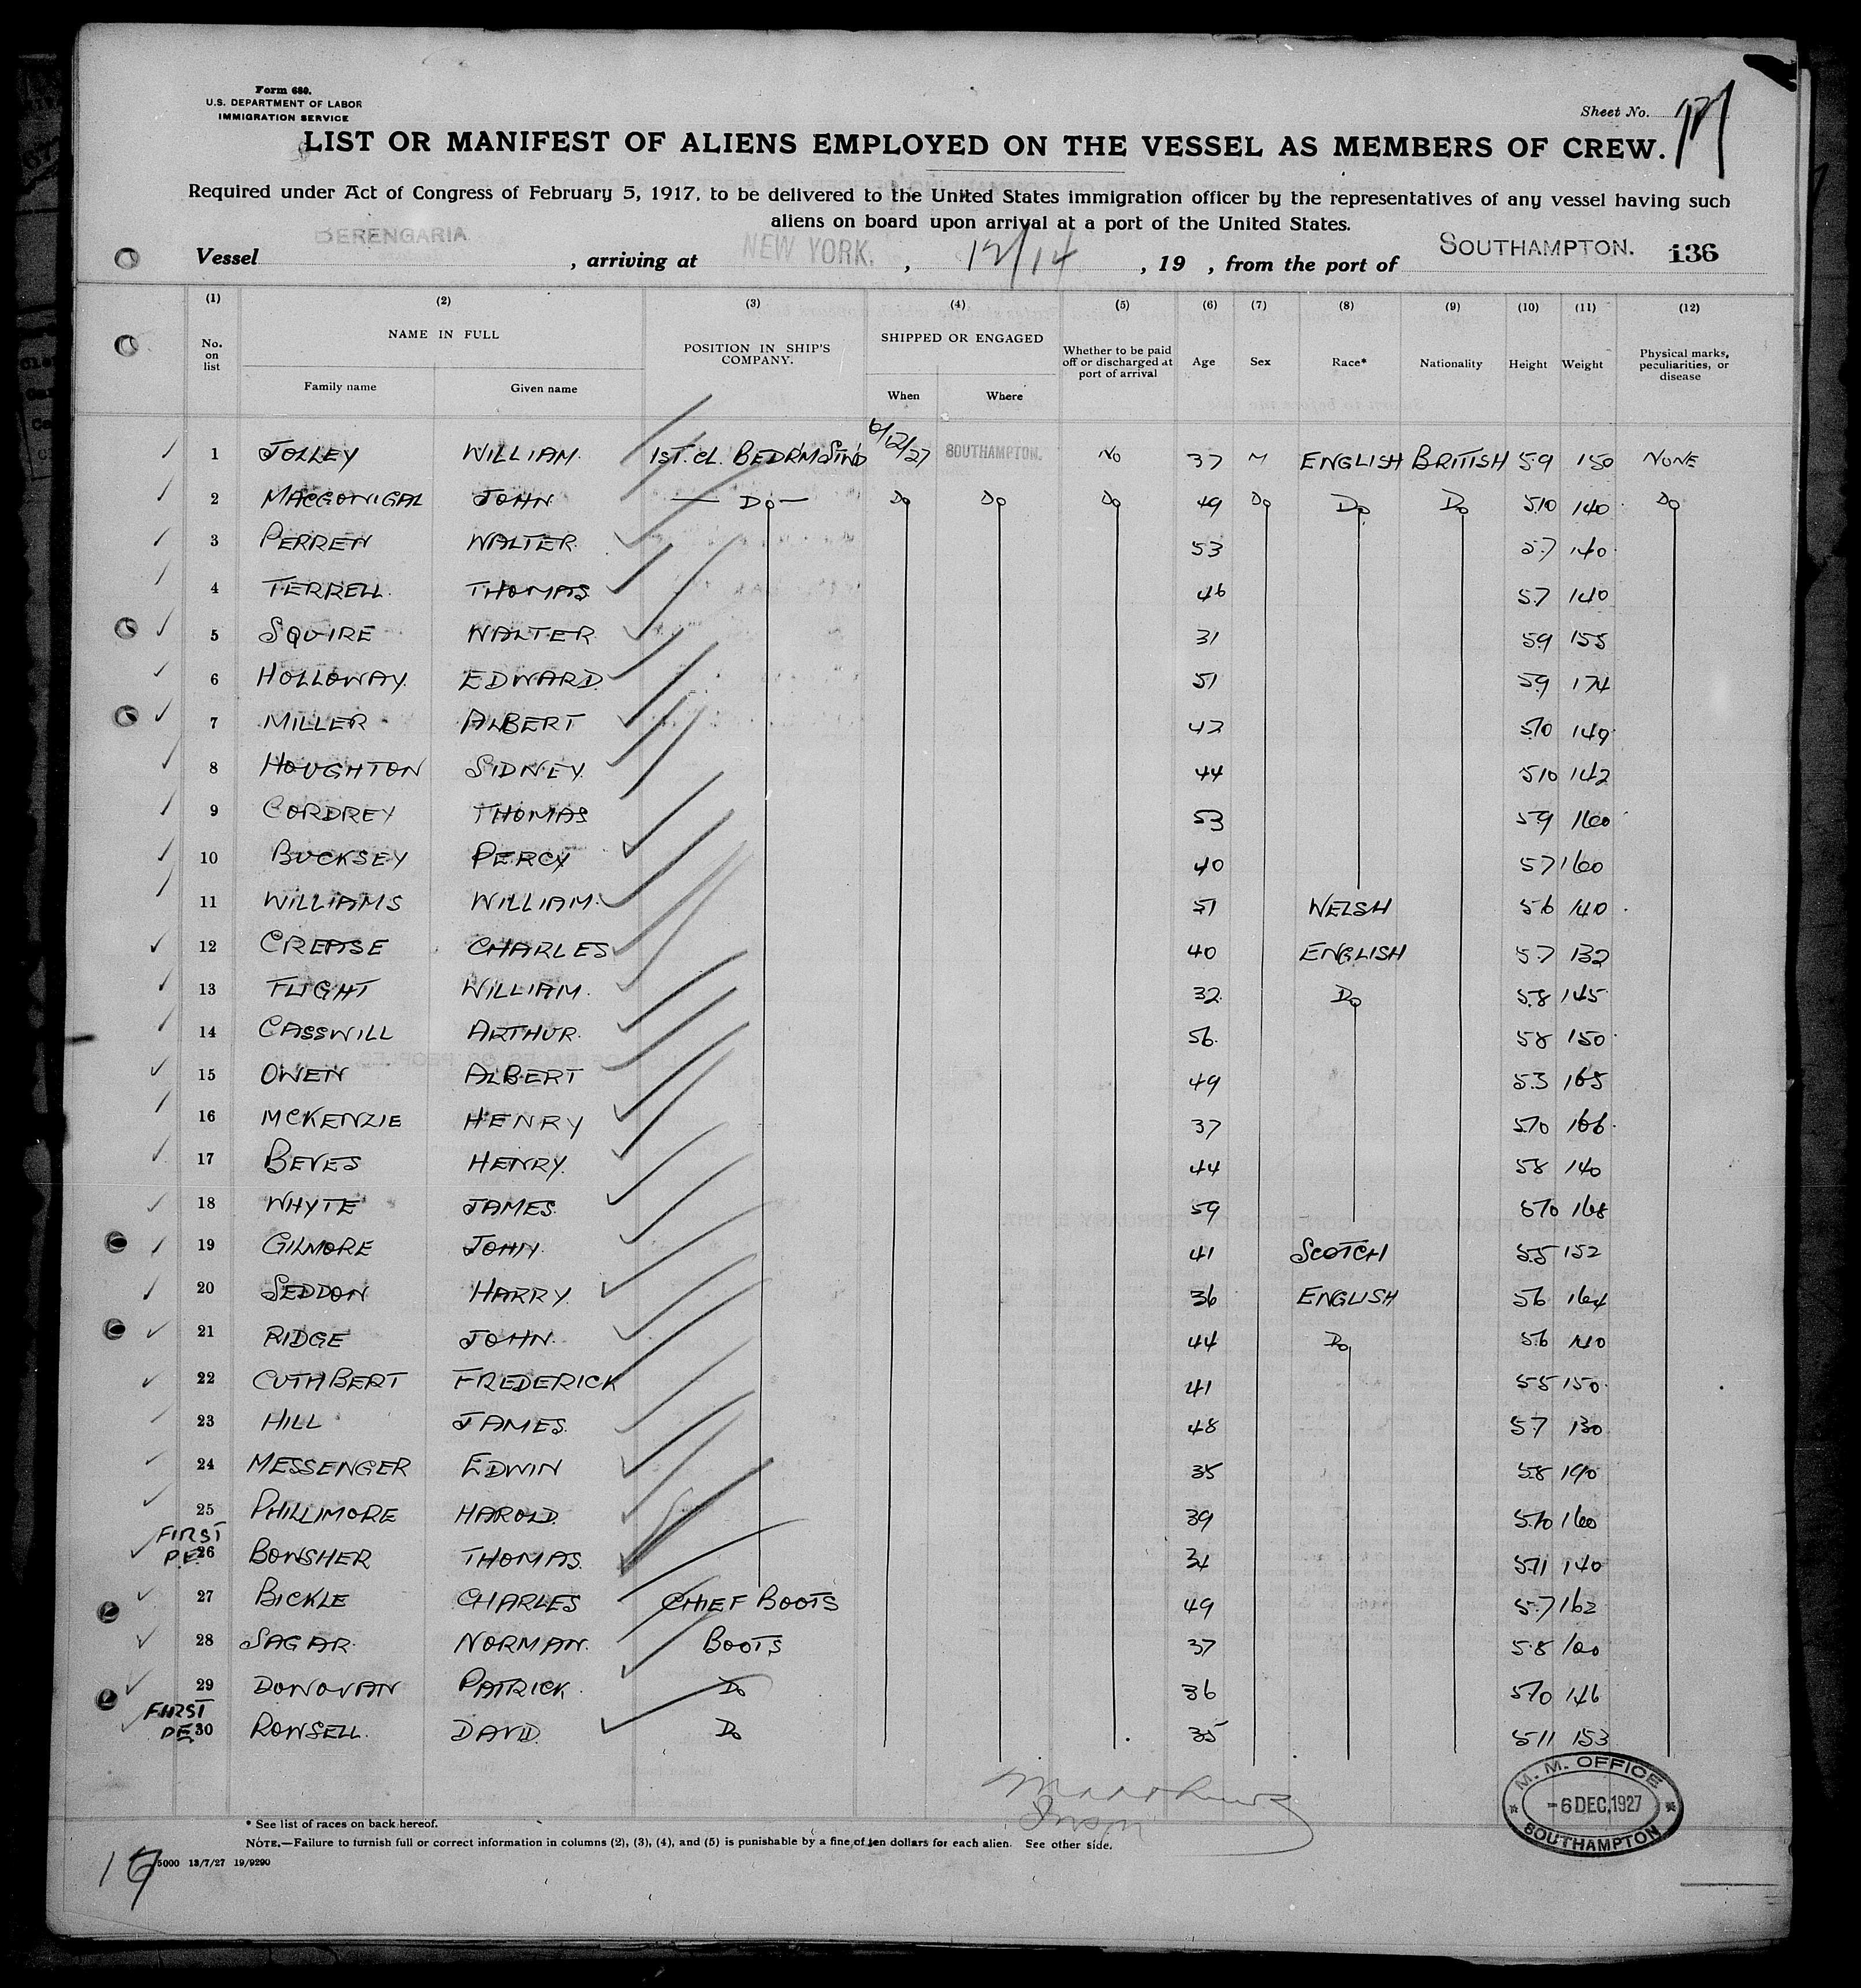 Form 680.
U.S. DEPARTMENT OF LABOR
IMMIGRATION SERVICE
Sheet No.
LIST OR MANIFEST OF ALIENS EMPLOYED ON THE VESSEL AS MEMBERS OF CREW.
Required under Act of Congress of February 5, 1917, to be delivered to the United States immigration officer by the representatives of any vessel having such
aliens on board upon arrival at a port of the United States.
Vessel BERENGARIA, arriving at NEW YORK., 12/14, 19 , from the port of SOUTHAMPTON. 136
(1) (2) (3) (4) (5) (6) (7) (8) (9) (10) (11) (12)
No. on list NAME IN FULL Family name Given name POSITION IN SHIP'S COMPANY. SHIPPED OR ENGAGED When Where Whether to be paid off or discharged at port of arrival Age Sex Race* Nationality Height Weight Physical marks, peculiarities, or disease
1 JOLLEY WILLIAM. 1ST. CL. BEDRM STWD 6/12/27 SOUTHAMPTON. NO 37 M ENGLISH BRITISH 59 150 NONE
2 MACGONIGAL JOHN — Do — Do Do Do 49 Do Do Do 5.10 140 Do
3 PERREN WALTER 53 5.7 140
4 TERRELL THOMAS 46 5.7 140
5 SQUIRE WALTER 31 5.9 155
6 HOLLOWAY EDWARD. 51 5.9 174
7 MILLER ALBERT 42 5.10 149
8 HOUGHTON SIDNEY. 44 5.10 142
9 CORDREY THOMAS 53 5.9 160
10 BUCKSEY PERCY 40 5.7 160
11 WILLIAMS WILLIAM. 51 WELSH 5.6 140
12 CREASE CHARLES 40 ENGLISH 5.7 132
13 FLIGHT WILLIAM. 32 Do 5.8 145
14 CASSWILL ARTHUR. 56 5.8 150
15 OWEN ALBERT 49 5.3 165
16 MCKENZIE HENRY 37 5.10 166
17 BEVES HENRY. 44 5.8 140
18 WHYTE JAMES. 59 5.10 168
19 GILMORE JOHN. 41 SCOTCH 5.5 152
20 SEDDON HARRY. 36 ENGLISH 5.6 164
21 RIDGE JOHN. 44 Do 5.6
22 CUTHBERT FREDERICK 41 5.5 150
23 HILL JAMES. 48 5.7 130
24 MESSENGER EDWIN 35 5.8 190
25 PHILLIMORE HAROLD. 39 5.10 160
FIRST PE 26 BOWSHER THOMAS. 5.11 140
27 BICKLE CHARLES CHIEF BOOTS 49 5.7 162
28 SAGAR NORMAN. BOOTS 37 5.8
29 DONOVAN PATRICK Do 36 5.10 146
FIRST PE 30 ROWSELL DAVID. Do 35 5.11 153
M. M. OFFICE
-6 DEC. 1927
SOUTHAMPTON
* See list of races on back hereof.
NOTE.—Failure to furnish full or correct information in columns (2), (3), (4), and (5) is punishable by a fine of ten dollars for each alien. See other side.
5000 13/7/27 19/9290